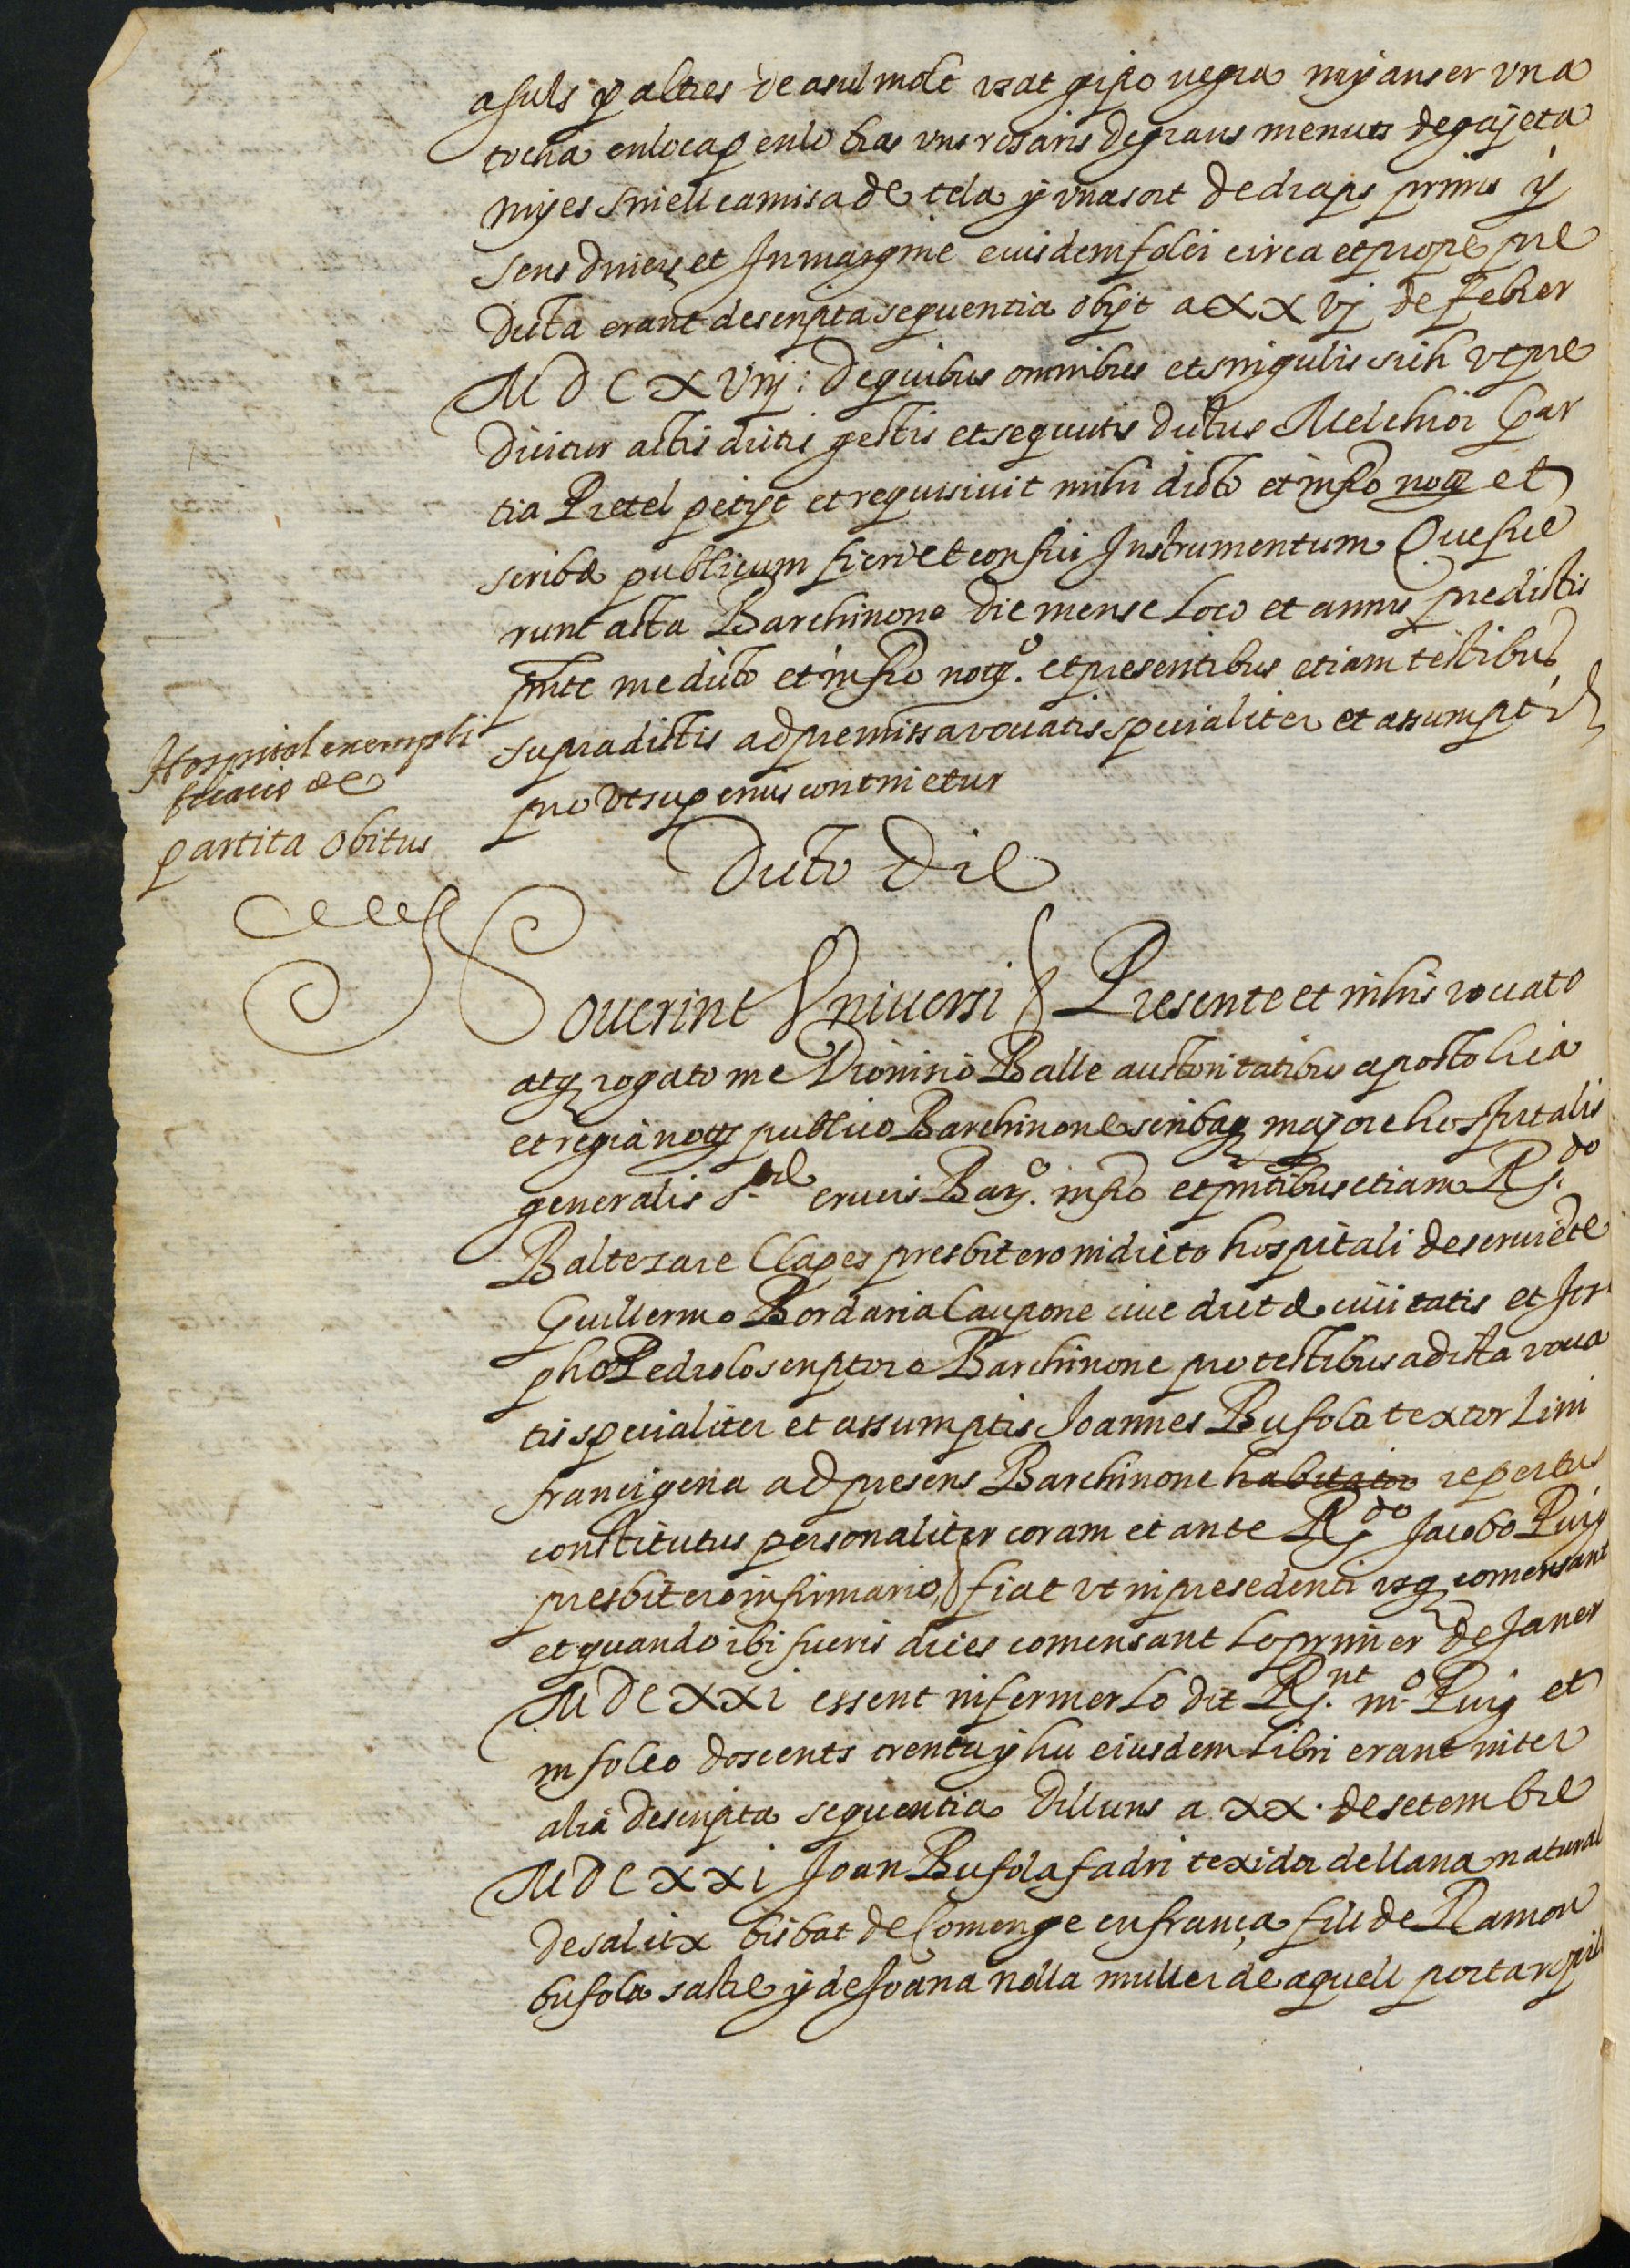 asuls y altres de asul molt usat gipo negra mijanser una
tocha en lo cap en lo bras uns rosaris de graus menuts de gajeta
mijes sinell camisa de tela y una sort de draps prims y
sens diners et In margine euisdem folei circa et prope pre
dicta erant descripta sequentia obijt a XXvj de febrer
MDCXViiij: De quibus omnibus et singulis sich ut pre
dicitur actis dictis gestis et sequutis dictus Melchior Gar
tia Pretel petijt et requisiuit mihi dicto et infro notº et
scribæ publicum fieri et confici Instrumentum Que fue
runt acta Barchinone die mense Loco et annis predictis
pnte me dicto et infro notº. et presentibus etiam testibus
supradictis ad premissa vocatis specialiter et assumptis
prout superius continetur
Hospital exempli
ficacio de
partita obitus
Dicto Die
Noverint Universi Presente et inhis vocato
atq rogato me Dionisio Balle auctoritatibus apostolica
et regia notº publico Barchinone scribaq majore hospitalis
generalis Stæ crucis Barº. infro et pntibus etiam Rdo.
Baltezare Clapes presbitero in dicto hospitali deseruiēte
Guillermo Bordaria Caupone ciue dictæ ciuitatis et Jose
pho Pedrolo scriptore Barchinone pro testibus ad ista voca
tis specialiter et assumptis Joannes Bufola textor Lini
francigena ad presens Barchinone habitator repertus
constitutus personaliter coram et ante Rdo Jacobo Puig
presbitero infirmario, fiat ut in presedenti usq comensant
et quando ibi fueris dices comensant Lo primer de Janer
MDCXXi essent infermer Lo dit Rnt. mº Puig et
in foleo doscents trenta y hu eiusdem Libri erant inter
alia descripta sequentia Dilluns a XX. de setembre
MDCXXi Joan Bufola fadri texidor de llana natural
de salitx bisbat de Comenge en frança fill de Ramon
bufola sastre y de Joana nolla muller de aquell porta ropill